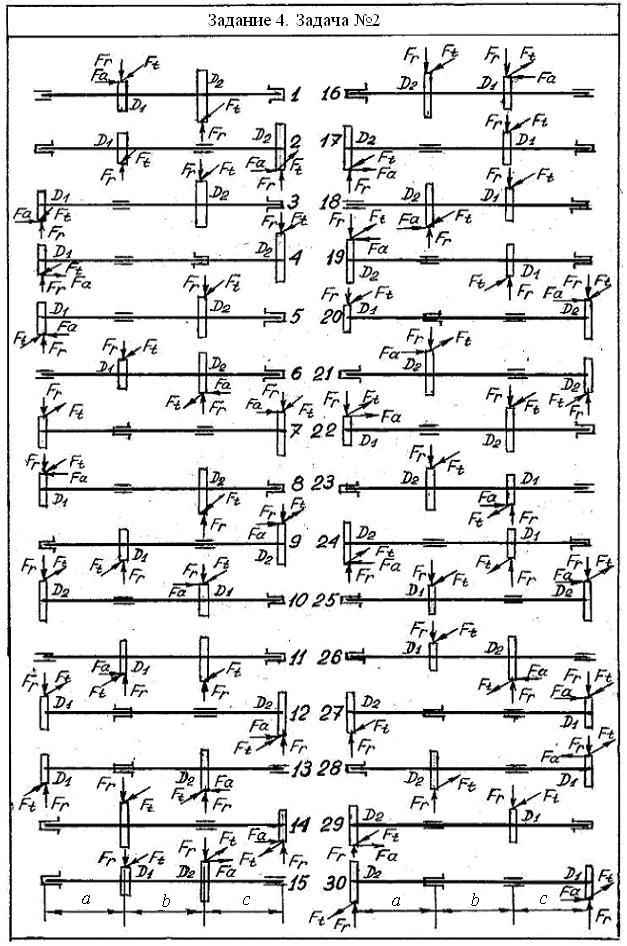 Задание 4. Задача №2
Fr Ft Fa D1 D2 Ft Fr 1
16 Fr Ft D2 Fr Ft Fa D1
D1 Ft Fr 2 D2 Fa Ft Fr
17 D2 Ft Fa Fr Fr Ft D1
Fa D1 Ft Fr Fr Ft D2 3
18 D2 Fa Ft Fr Fr Ft D1
D1 Ft Fa Fr 4 Fr Ft D2
19 Fr Ft Fa D2 Ft Fr D1
D1 Ft Fa Fr Fr Ft D2 5
20 Fr Ft D1 Fr Ft Fa D2
Fr Ft D1 D2 Ft Fa Fr 6
21 Fr Ft Fa D2 D2 Ft Fr
Fr Ft 7 Fr Fa Ft
22 Fr Ft Fa D1 Fr Ft D2
Fr Ft Fa D1 D2 Ft Fr 8
23 Fr Ft D2 Fa D1 Ft Fr
D1 Ft Fr 9 Fr Ft Fa D2
24 D2 Ft Fa Fr D1 Ft Fr
Fr Ft D2 Ft Fa D1 10
25 Fr Ft D1 Fr Ft Fa D2
Fa D1 Ft Fr Ft Fr 11
26 Fr Ft D1 D2 Fa Ft Fr
Fr Ft D1 12 D2 Fa Ft Fr
27 D2 Ft Fr Fr Ft Fa D1
D1 Ft Fr D2 Fa Ft Fr 13
28 D2 Ft Fr Fr Ft Fa D1
Fr Ft 14 Fa Ft Fr
29 D2 Ft Fa Fr Fr Ft D1
Fr Ft D1 Fr Ft Fa D2 15
30 D2 Ft Fr D1 Fa Ft Fr
a b c a b c